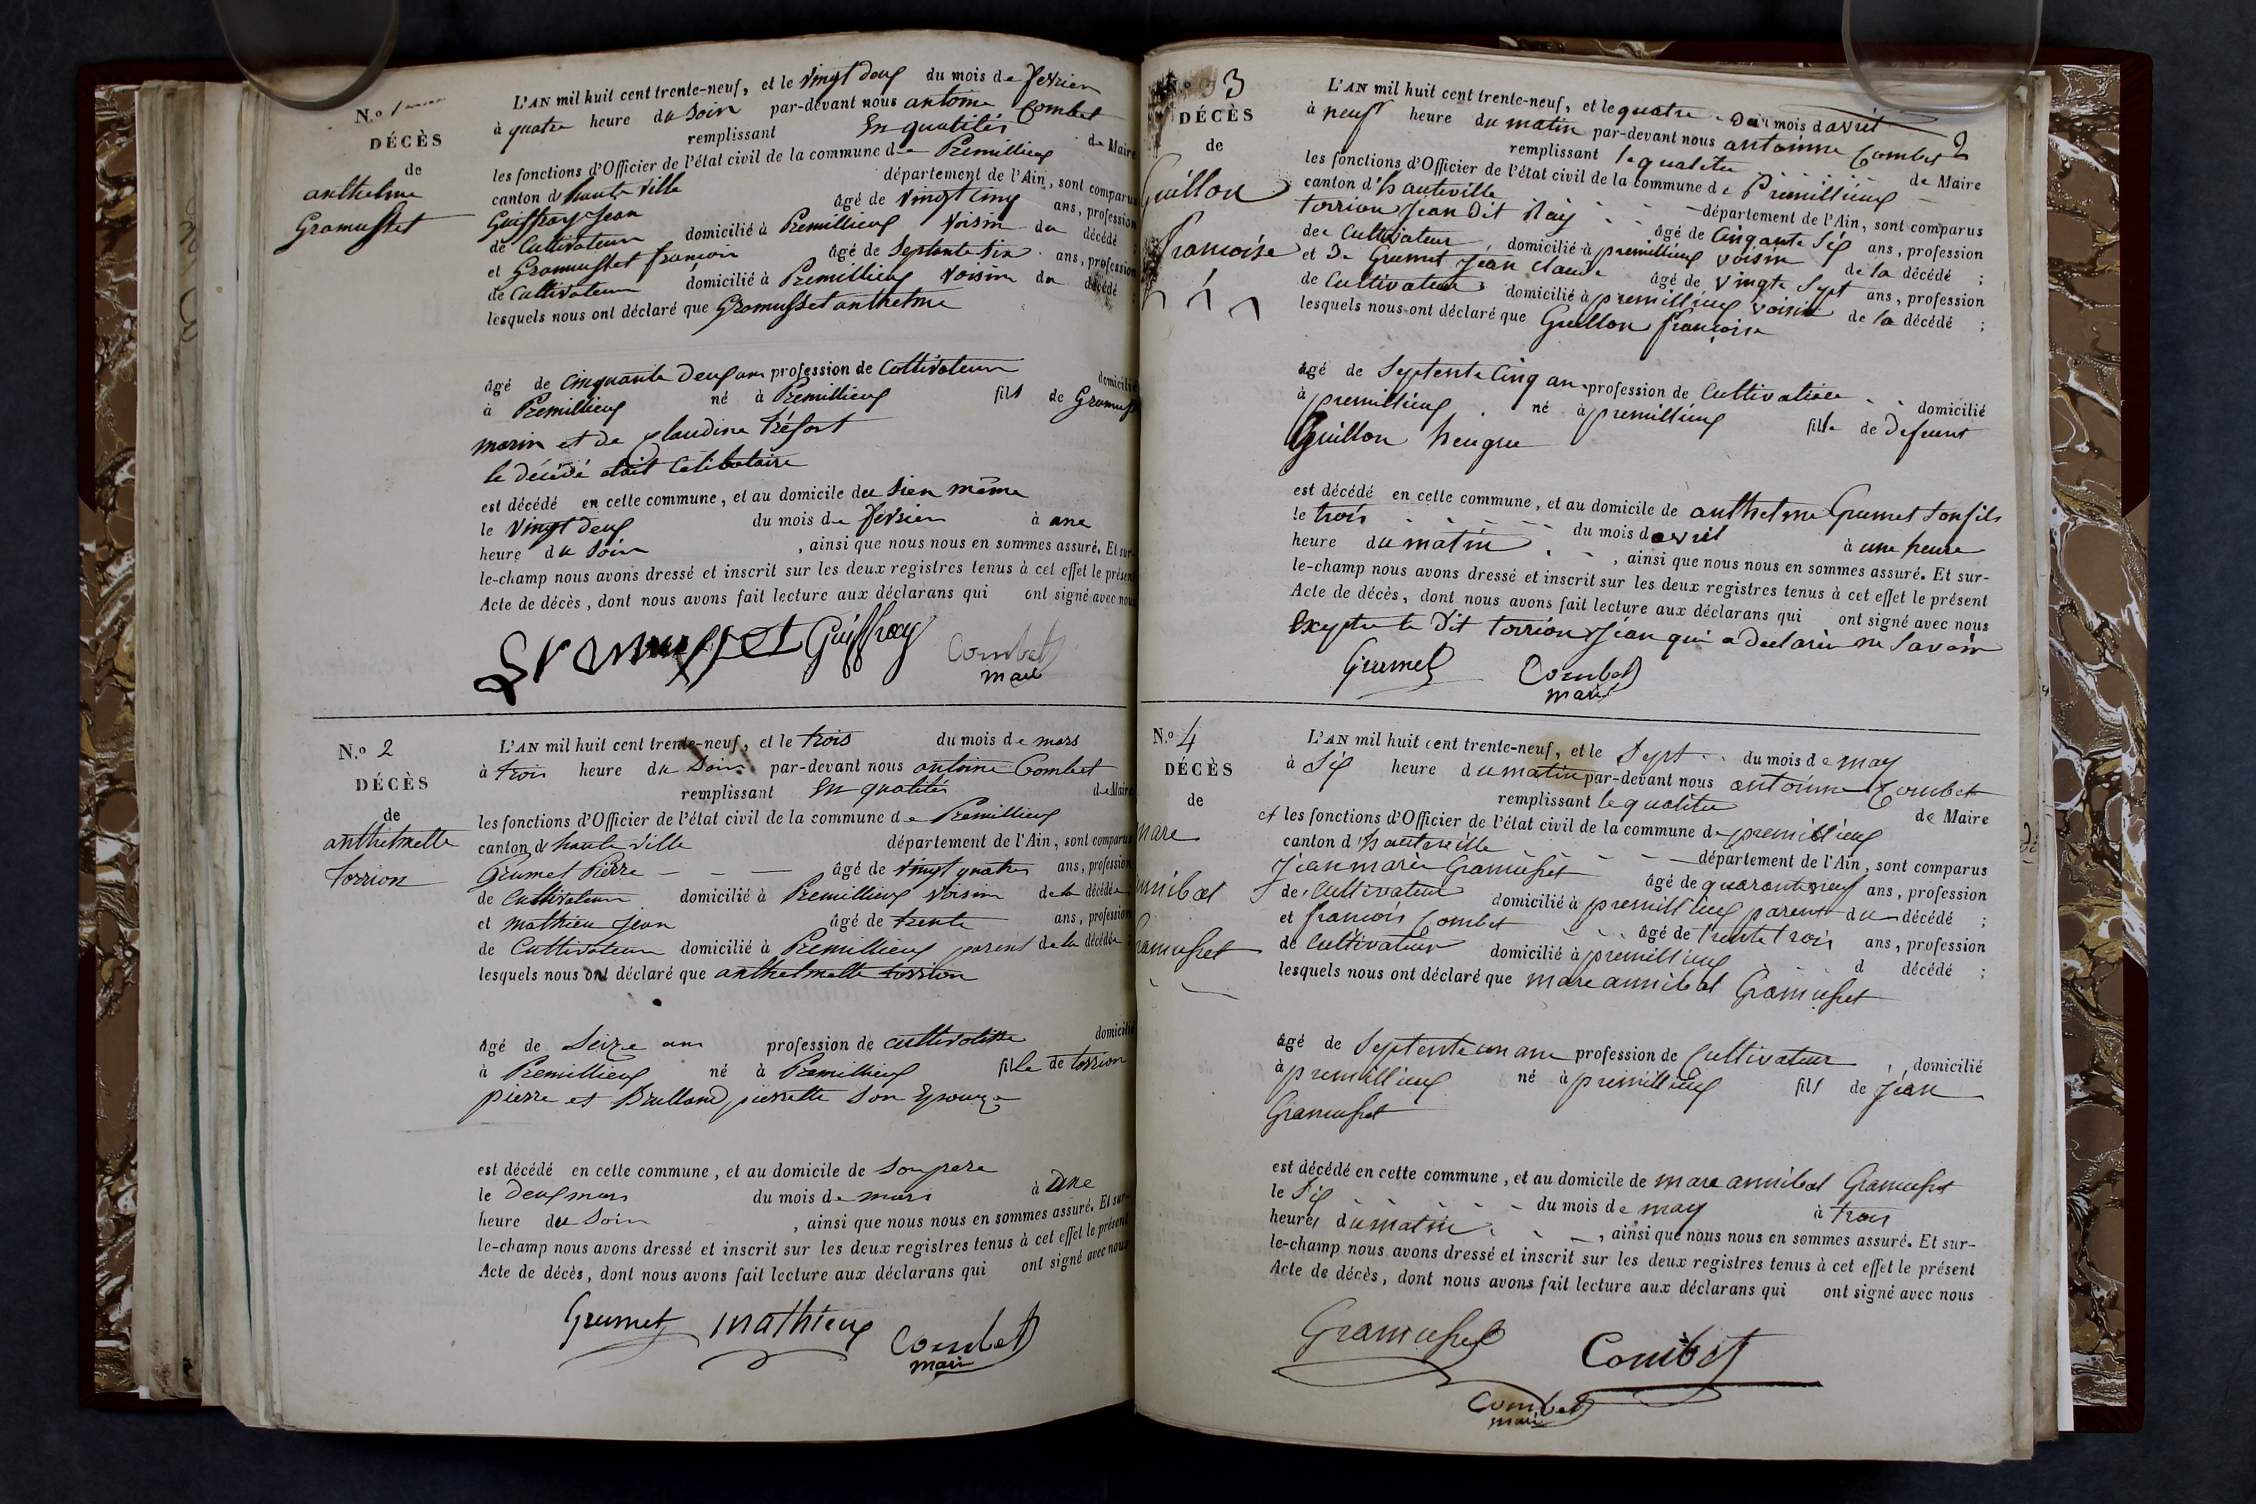 N.o 1
DÉCÈS
de
anthelme
Gramusset
L'AN mil huit cent trente-neuf, et le vingt deux du mois de fevrier
à quatre heure du Soir par-devant nous antoine Combet
remplissant En qualités de Maire
les fonctions d'Officier de l'état civil de la commune de Premillieux
canton d haute ville département de l'Ain, sont comparus
Guiffray Jean âgé de vingt cinq ans, profession
de Cultivateur domicilié à Premillieux voisin du décédé
et Gramusset françois âgé de Septante six ans, profession
de Cultivateur domicilié à Premillieux voisin du décédé
lesquels nous ont déclaré que Gramusset anthelme
âgé de cinquante deux ans profession de Cultivateur domicilié
à Premillieux né à Premillieux fils de Gramuss
marin et de Claudine tréfort
le décédé était Celibataire
est décédé en cette commune, et au domicile du Sien même
le vingt deux du mois de fevrier à une
heure du Soir , ainsi que nous nous en sommes assuré. Et sur-
le-champ nous avons dressé et inscrit sur les deux registres tenus à cet effet le présent
Acte de décès, dont nous avons fait lecture aux déclarans qui ont signé avec nous
Gramusset Guiffray Combet
maire
N.o 2
DÉCÈS
de
anthelmette
torrion
L'AN mil huit cent trente-neuf, et le trois du mois de mars
à trois heure du Soir par-devant nous antoine Combet
remplissant En qualités de Maire
les fonctions d'Officier de l'état civil de la commune de Premillieux
canton d haute ville département de l'Ain, sont comparus
Grumet Pierre âgé de vingt quatre ans, profession
de Cultivateur domicilié à Premillieux voisin de la décédée
et mathieu Jean âgé de trente ans, profession
de Cultivateur domicilié à Premillieux parent de la décédée ;
lesquels nous ont déclaré que anthelmette torrion
âgé de Seize ans profession de cultivatisse domicilié
à Premillieux né à Premillieux fille de torrion
pierre et Brulland pierrette Son Epouze
est décédé en cette commune, et au domicile de Son pere
le deux mars du mois de mars à une
heure du Soir , ainsi que nous nous en sommes assuré. Et sur-
le-champ nous avons dressé et inscrit sur les deux registres tenus à cet effet le présent
Acte de décès, dont nous avons fait lecture aux déclarans qui ont signé avec nous
Grumet mathieu Combet
maire
N.o 3
DÉCÈS
de
Guillon
francoise
L'AN mil huit cent trente-neuf, et le quatre du mois d avril
2
à neuf heure du matin par-devant nous antoinne Combet
remplissant le qualite de Maire
les fonctions d'Officier de l'état civil de la commune de Premillieux
canton d'hauteville département de l'Ain, sont comparus
torrion Jean Dit âgé de Cinqante Six ans, profession
de Cultivateur, domicilié à premillieux voisin de la décédé ;
et De Grumet Jean claude âgé de vingte Sept ans, profession
de Cultivateur domicilié à premillieux voisin de la décédé ;
lesquels nous ont déclaré que Guillon françoise
âgé de Septente Cinq an profession de Cultivatrice domicilié
à premillieux né à premillieux fille de defeunt
Guillon
est décédé en cette commune, et au domicile de anthelme Grumet Son fils
le trois du mois d avril à une heure
heure du matin , ainsi que nous nous en sommes assuré. Et sur-
le-champ nous avons dressé et inscrit sur les deux registres tenus à cet effet le présent
Acte de décès, dont nous avons fait lecture aux déclarans qui ont signé avec nous
Exeptee le Dit torrion Jean qui a declarer ne Savoir
Grumet Combet
maire
N.o 4
DÉCÈS
de
mare
annibal
Gramuset
L'AN mil huit cent trente-neuf, et le Sept du mois de may
à Six heure du matin par-devant nous antoinne Combet
remplissant le qualitee de Maire
les fonctions d'Officier de l'état civil de la commune de premillieux
canton d'hauteville département de l'Ain, sont comparus
Jean marie Gramuset âgé de quarante neuf ans, profession
de Cultivateur domicilié à premillieux parent du décédé ;
et francois Combet âgé de trente trois ans, profession
de Cultivateur domicilié à premillieux d décédé ;
lesquels nous ont déclaré que mare annibal Gramuset
âgé de Septente un ans profession de Cultivateur, domicilié
à premillieux né à premillieux fils de Jean
Gramuset
est décédé en cette commune, et au domicile de mare annibal Gramuset
le Six du mois de may à trois
heures du matin , ainsi que nous nous en sommes assuré. Et sur-
le-champ nous avons dressé et inscrit sur les deux registres tenus à cet effet le présent
Acte de décès, dont nous avons fait lecture aux déclarans qui ont signé avec nous
Gramuset Combet
Combet
maire